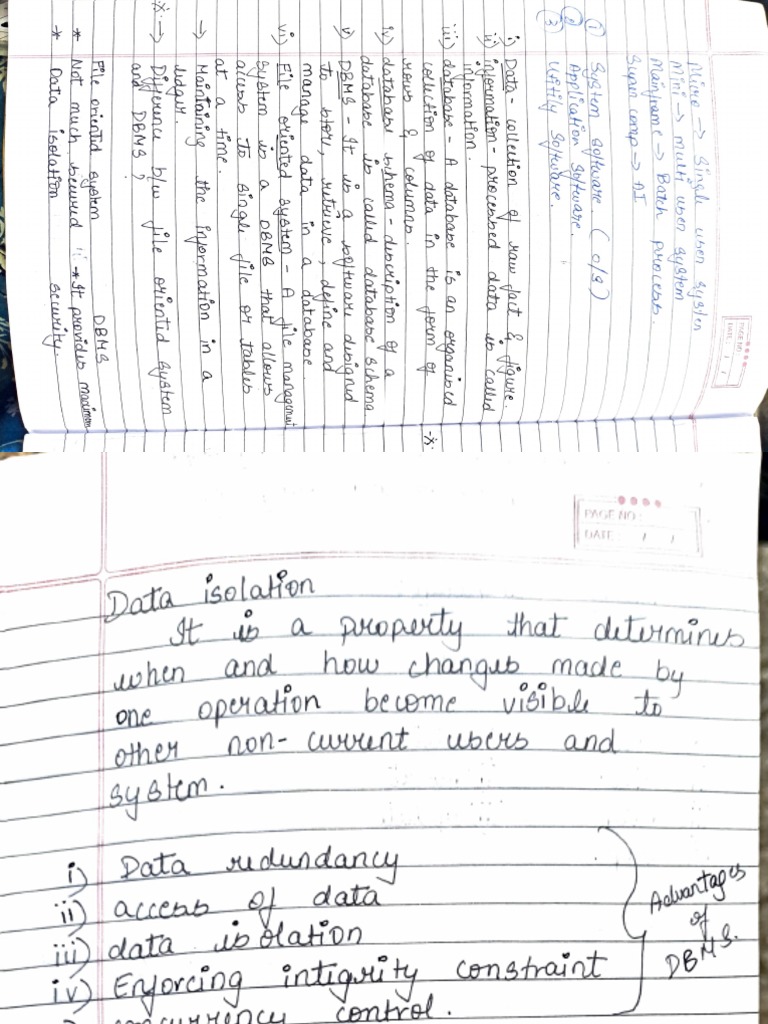 PAGE NO:
DATE: / /
Micro → Single user system
Mini → multi user system
Mainframe → Batch process.
Super comp → AI
① System software. (O/S)
② Application software.
③ Utitly software.
i) Data - collection of raw fact & figure.
ii) information - processed data is called
information.
iii) database - A database is an organised
collection of data in the form of
rows & columns.
iv) database schema - discription of a
database is called database schema
v) DBMS - It is a software disigned
to store, retrieve, define and
manage data in a database.
vi) File oriented system - A file management
system is a DBMS that allows
access to single file or tables
at a time.
→ Maintaining the information in a
ledger.
※ → Difference b/w file oriented system
and DBMS?
File oriented system DBMS
* Not much secured → * It provides maximum
* Data isolation security.
PAGE NO:
DATE: / /
Data isolation
It is a property that determines
when and how changes made by
one operation become visible to
other non-current users and
system.
i) Data redundancy
ii) access of data
iii) data isolation
iv) Enforcing intigrity constraint
concurrency control.
Advantages
of
DBMS.